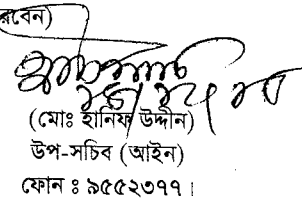 রবেন)
(মোঃ হানিফ উদ্দীন)
উপ-সচিব (আইন)
ফোন ঃ ৯৫৫২৩৭৭।